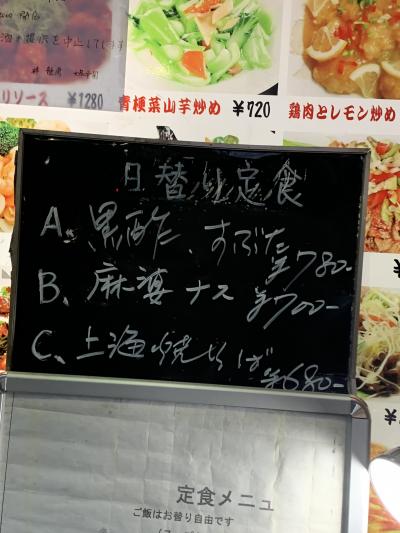 を中止してします
リソース ¥1280
青梗菜山芋炒め ¥720
鶏肉とレモン炒め
日替り定食
A、黒酢、すぶた ¥780-
B、麻婆ナス ¥700-
C、上海焼そば ¥680-
定食メニュ
ご飯はお替り自由です